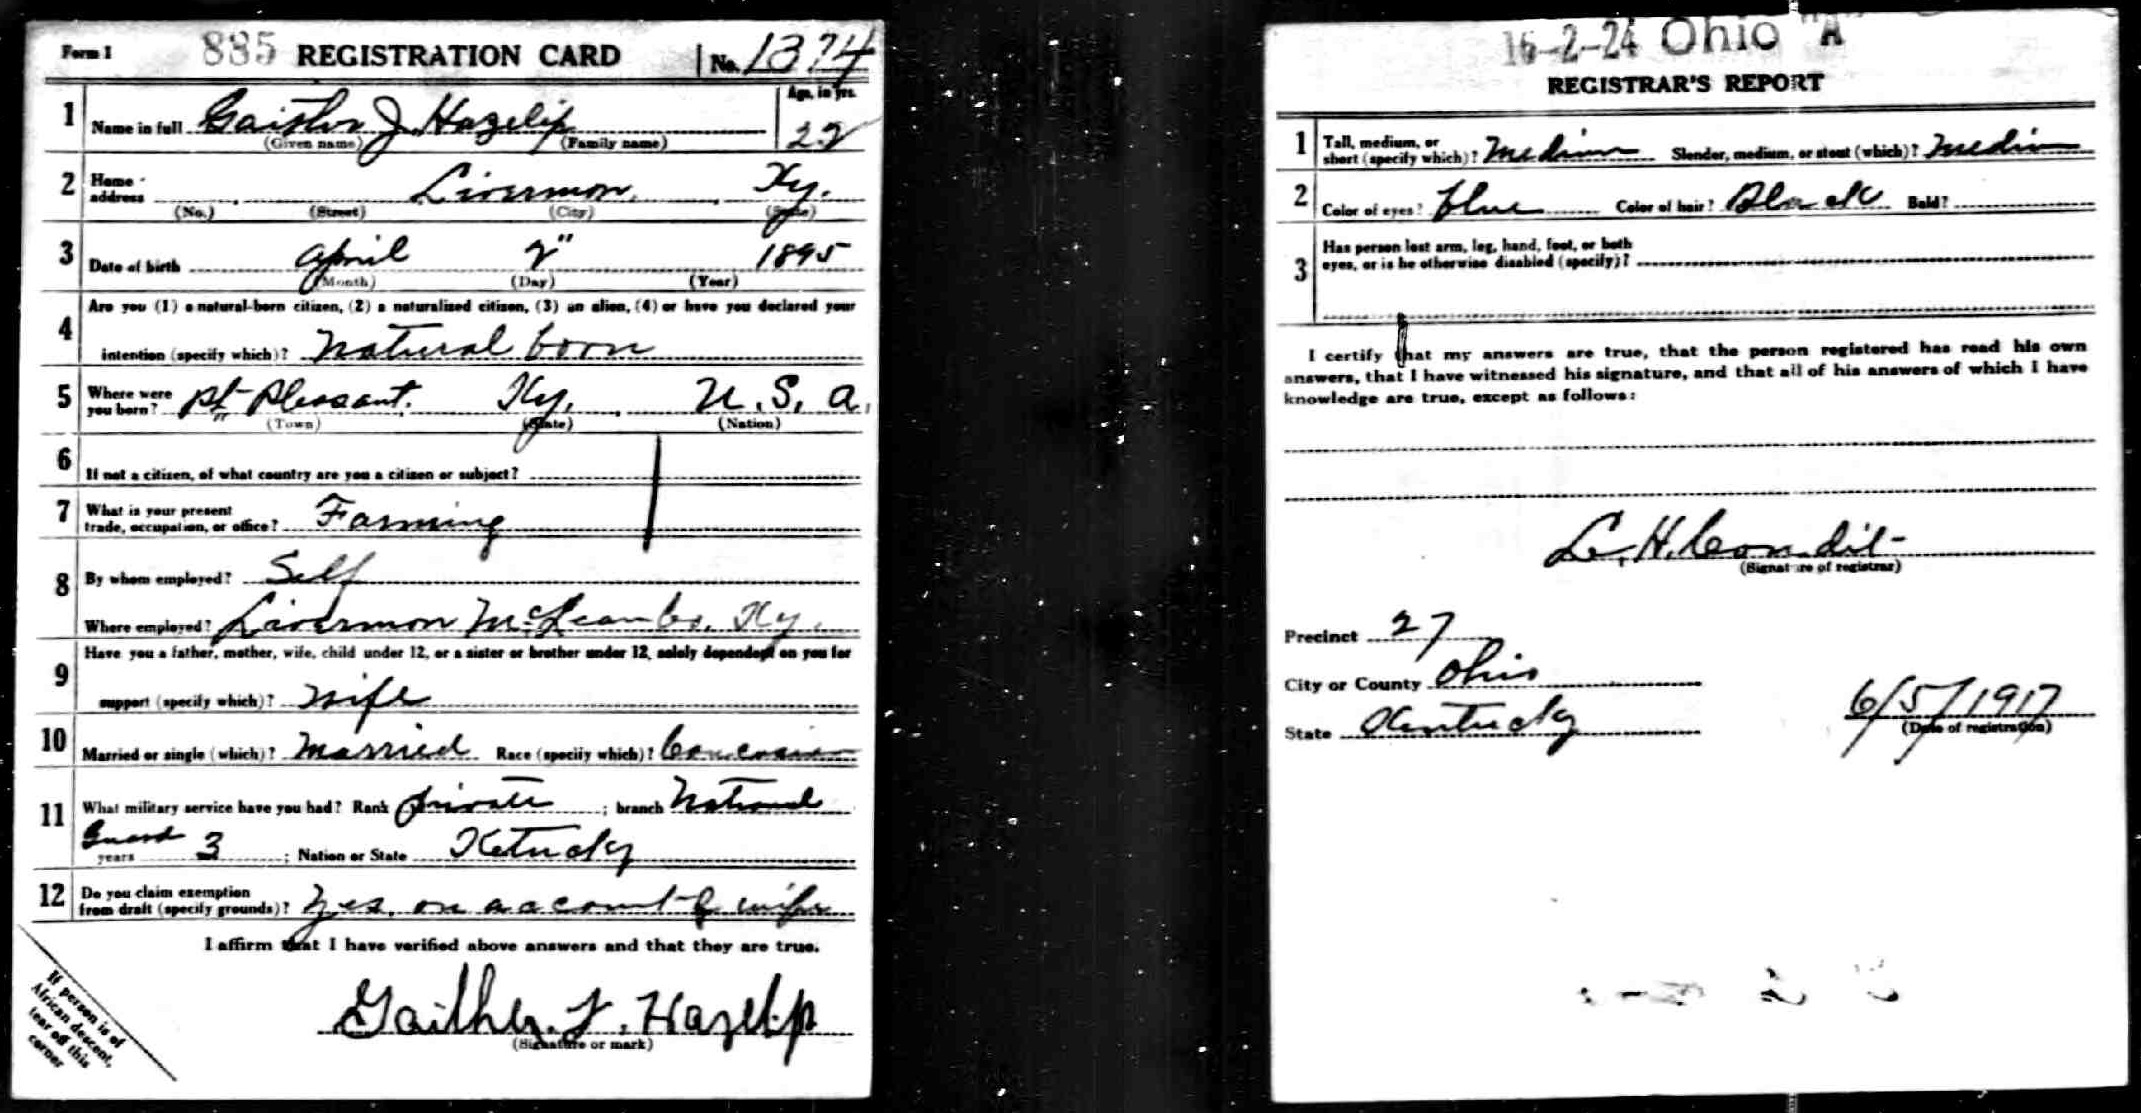 Form 1 885 REGISTRATION CARD No. 1374
1 Name in full Gaither J. Hazelip Age, in yrs. 22
(Given name) (Family name)
2 Home address Livermon, Ky.
(No.) (Street) (City) (State)
3 Date of birth April 2" 1895
(Month) (Day) (Year)
4 Are you (1) a natural-born citizen, (2) a naturalized citizen, (3) an alien, (4) or have you declared your
intention (specify which)? Natural born
5 Where were you born? Pt. Pleasant. Ky. U. S. a.
(Town) (State) (Nation)
6 If not a citizen, of what country are you a citizen or subject?
7 What is your present
trade, occupation, or office? Farming
8 By whom employed? Self
Where employed? Livermon McLean Co. Ky.
9 Have you a father, mother, wife, child under 12, or a sister or brother under 12, solely dependent on you for
support (specify which)? wife
10 Married or single (which)? Married Race (specify which)? Caucasian
11 What military service have you had? Rank private ; branch National
Guard years 3 ; Nation or State Ketucky
12 Do you claim exemption
from draft (specify grounds)? Yes. on account of wife
I affirm that I have verified above answers and that they are true.
Gaither. J. Hazelip
(Signature or mark)
If person is of
African descent,
tear off this
corner
16-2-24 Ohio "A"
REGISTRAR'S REPORT
1 Tall, medium, or
short (specify which)? Medium Slender, medium, or stout (which)? Medium
2 Color of eyes? blue Color of hair? Black Bald?
3 Has person lost arm, leg, hand, foot, or both
eyes, or is he otherwise disabled (specify)?
I certify that my answers are true, that the person registered has read his own
answers, that I have witnessed his signature, and that all of his answers of which I have
knowledge are true, except as follows:
C. H. Condit
(Signature of registrar)
Precinct 27
City or County Ohio
State Kentucky
6/5/1917
(Date of registration)